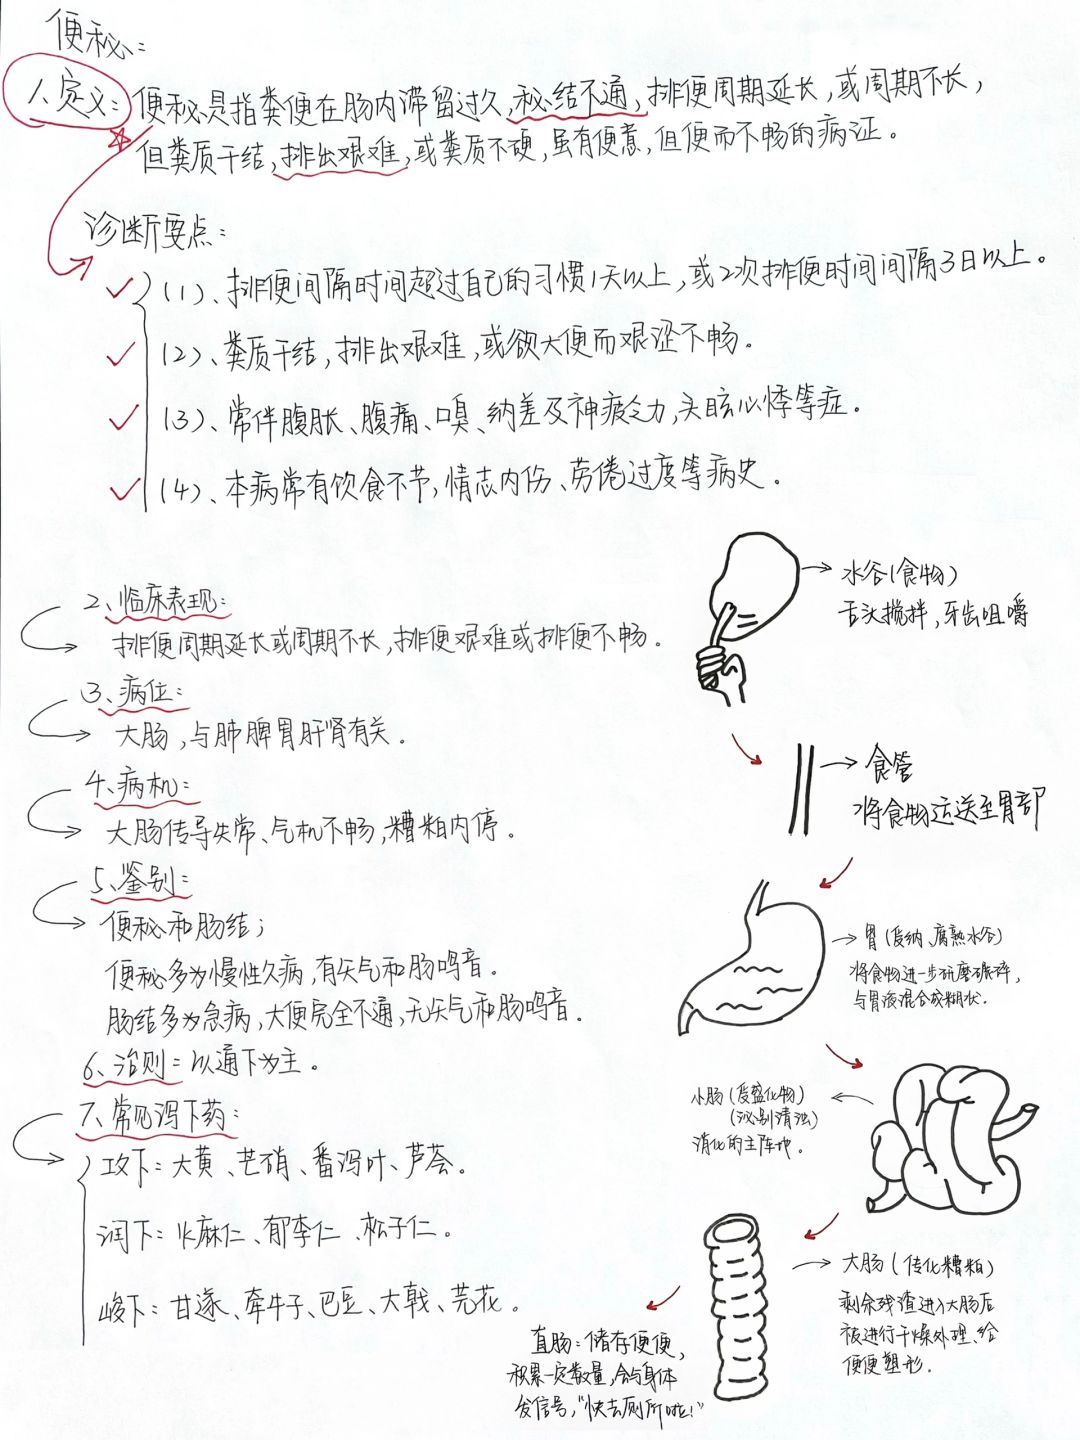 便秘:
1、定义: 便秘是指粪便在肠内滞留过久,秘结不通,排便周期延长,或周期不长,
但粪质干结,排出艰难,或粪质不硬,虽有便意,但便而不畅的病证。
诊断要点:
(1)、排便间隔时间超过自己的习惯1天以上,或2次排便时间间隔3日以上。
(2)、粪质干结,排出艰难,或欲大便而艰涩不畅。
(3)、常伴腹胀、腹痛、口臭、纳差及神疲乏力,头眩心悸等症。
(4)、本病常有饮食不节,情志内伤、劳倦过度等病史。
2、临床表现:
排便周期延长或周期不长,排便艰难或排便不畅。
3、病位:
大肠,与肺脾胃肝肾有关。
4、病机:
大肠传导失常、气机不畅,糟粕内停。
5、鉴别:
便秘和肠结;
便秘多为慢性久病,有矢气和肠鸣音。
肠结多为急病,大便完全不通,无矢气和肠鸣音。
6、治则:以通下为主。
7、常见泻下药:
攻下:大黄、芒硝、番泻叶、芦荟。
润下:火麻仁、郁李仁、松子仁。
峻下:甘遂、牵牛子、巴豆、大戟、芫花。
水谷(食物)
舌头搅拌,牙齿咀嚼
食管
将食物运送至胃部
胃(受纳、腐熟水谷)
将食物进一步研磨碾碎,
与胃液混合成糊状.
小肠(受盛化物)
(泌别清浊)
消化的主阵地。
大肠(传化糟粕)
剩余残渣进入大肠后
被进行干燥处理、给
便便塑形.
直肠:储存便便,
积累一定数量,会与身体
发信号,"快去厕所啦!"